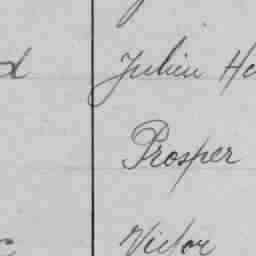 Julien
Prosper
Victor